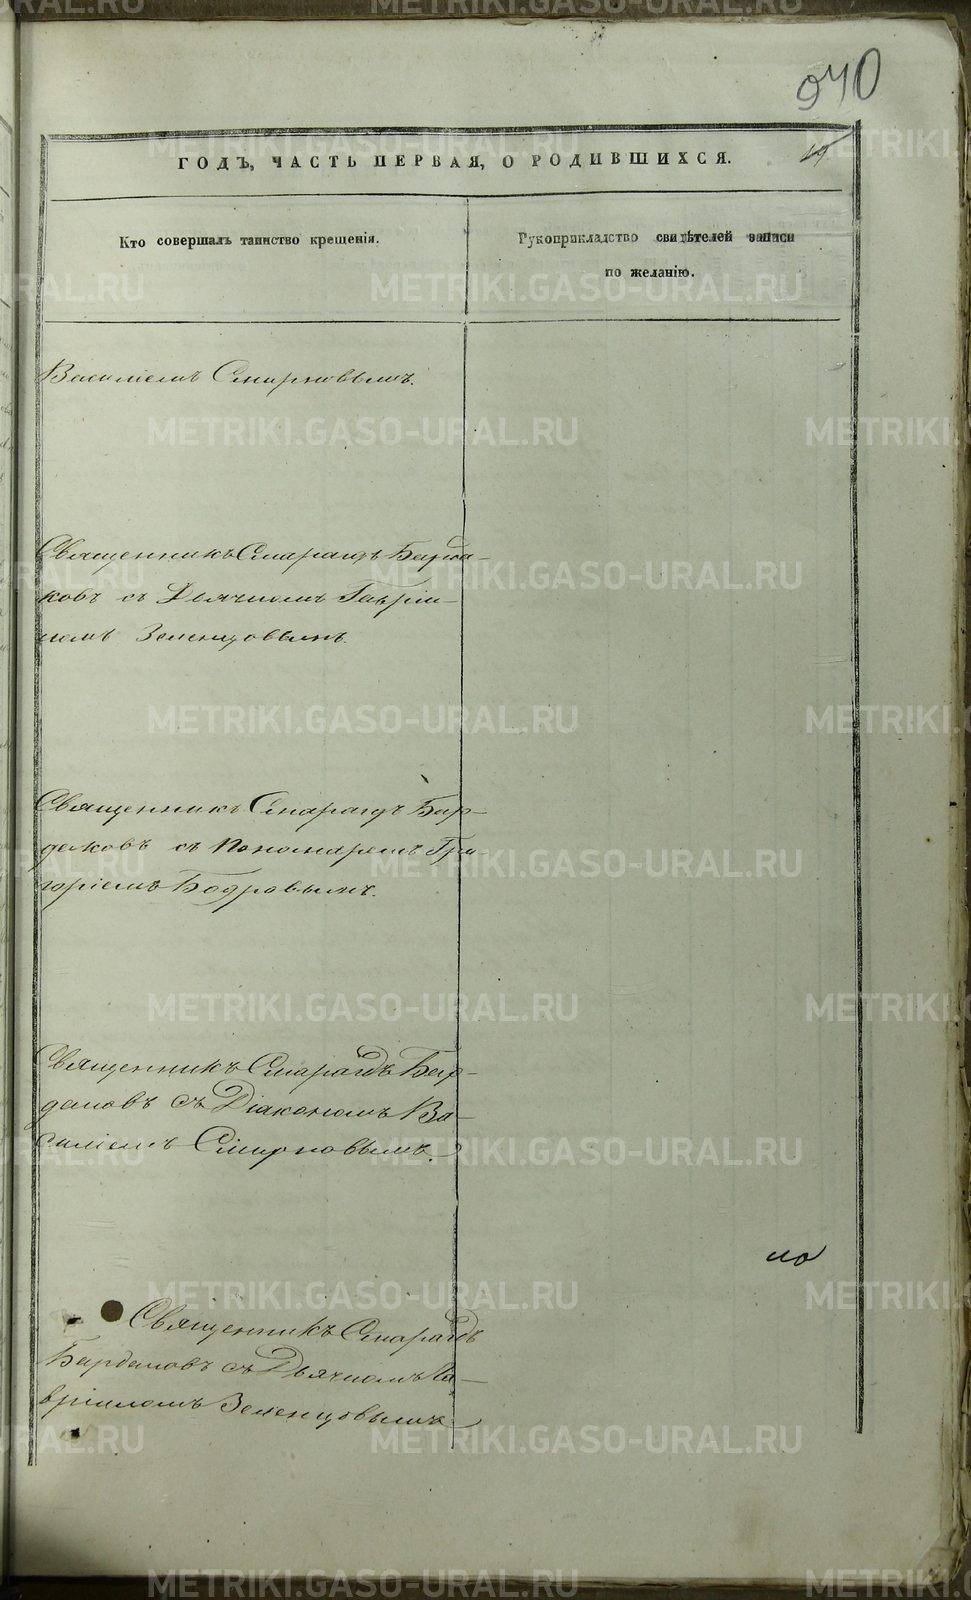 940
19
ГОДЪ, ЧАСТЬ ПЕРВАЯ, О РОДИВШИХСЯ.
Кто совершалъ таинство крещенія.
Рукоприкладство свидѣтелей записи
по желанію.
Василіемъ Смирновымъ.
Священникъ Смарагдъ Барда-
ковъ съ Дьячкомъ Гаврiи-
ломъ Зеленцовымъ.
Священникъ Смарагдъ Бар-
даковъ съ Пономаремъ Гри-
горіемъ Бодровымъ.
Священникъ Смарагдъ Бар-
даковъ съ Діакономъ Ва-
силіемъ Смирновымъ.
Священникъ Смарагдъ
Бардаковъ съ Дьячкомъ Га-
вріиломъ Зеленцовымъ
METRIKI.GASO-URAL.RU